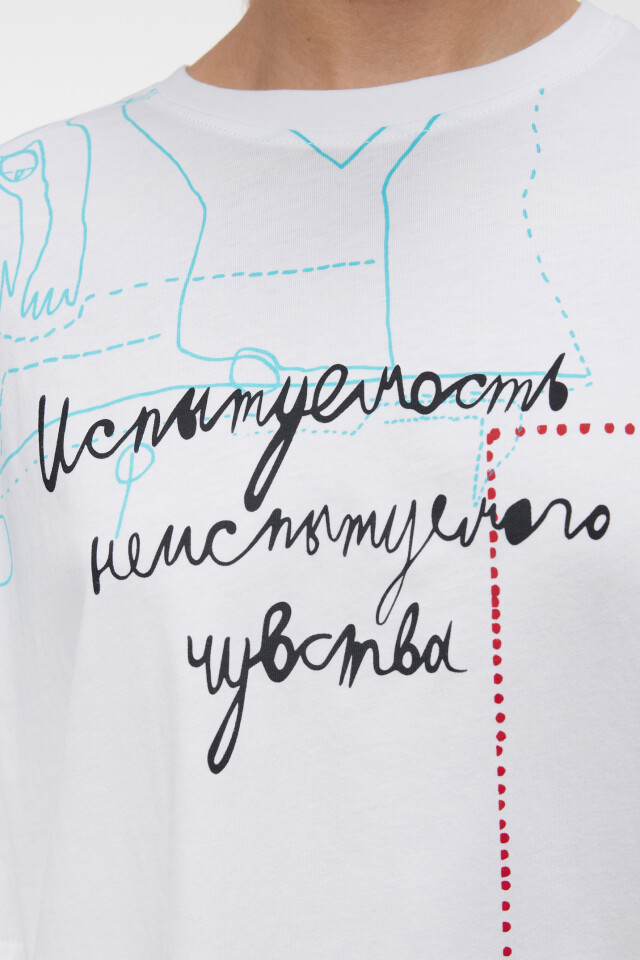 Испытуемость
неиспытуемого
чувства